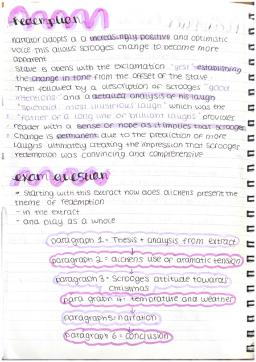 redemption
narrator adopts a a increasingly positive and optimistic
voice this allows scrooges change to become more
apparent
Stave 5 opens with the exclamation "yes!" establishing
the change in tone from the offset of the stave.
Then followed by a description of scrooges' "good
intentions" and a detailed analysis of his laugh
"splendid" "most illustrious laugh" which was the
"father of a long line of brilliant laughs" provides
reader with a sense of hope as it implies that scrooges
change is permanent due to the prediction of more
laughs ultimately creating the impression that Scrooges
redemption was convincing and comprehensive
exam question
* Starting with this extract how does dickens present the
theme of redemption
- in the extract
- and play as a whole
paragraph 1 = Thesis + analysis from extract
paragraph 2 = dickens use of dramatic tension
paragraph 3 = Scrooges attitude toward
christmas
para graph 4 = temprature and weather
paragraph 5 = narration
paragraph 6 = conclusion